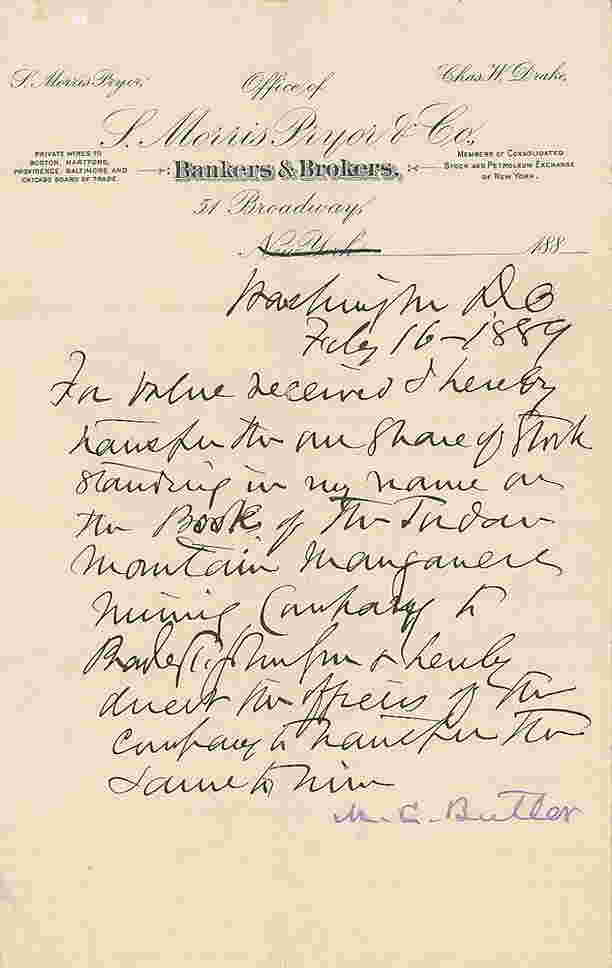 S. Morris Pryor,
Office of
Chas. W. Drake,
S. Morris Pryor & Co.,
PRIVATE WIRES TO
BOSTON, HARTFORD,
PROVIDENCE, BALTIMORE AND
CHICAGO BOARD OF TRADE.
Bankers & Brokers,
MEMBERS OF CONSOLIDATED
STOCK AND PETROLEUM EXCHANGE
OF NEW YORK.
51 Broadway,
New York 188
Washington D.C
Feby 16-1889
For value received I hereby
transfer the one share of Stock
standing in my name on
the Books of the Indian
Mountain Manganese
Mining Company to
Bradley T. Johnson & hereby
direct the officers of the
company to transfer the
same to him
M. C. Butler